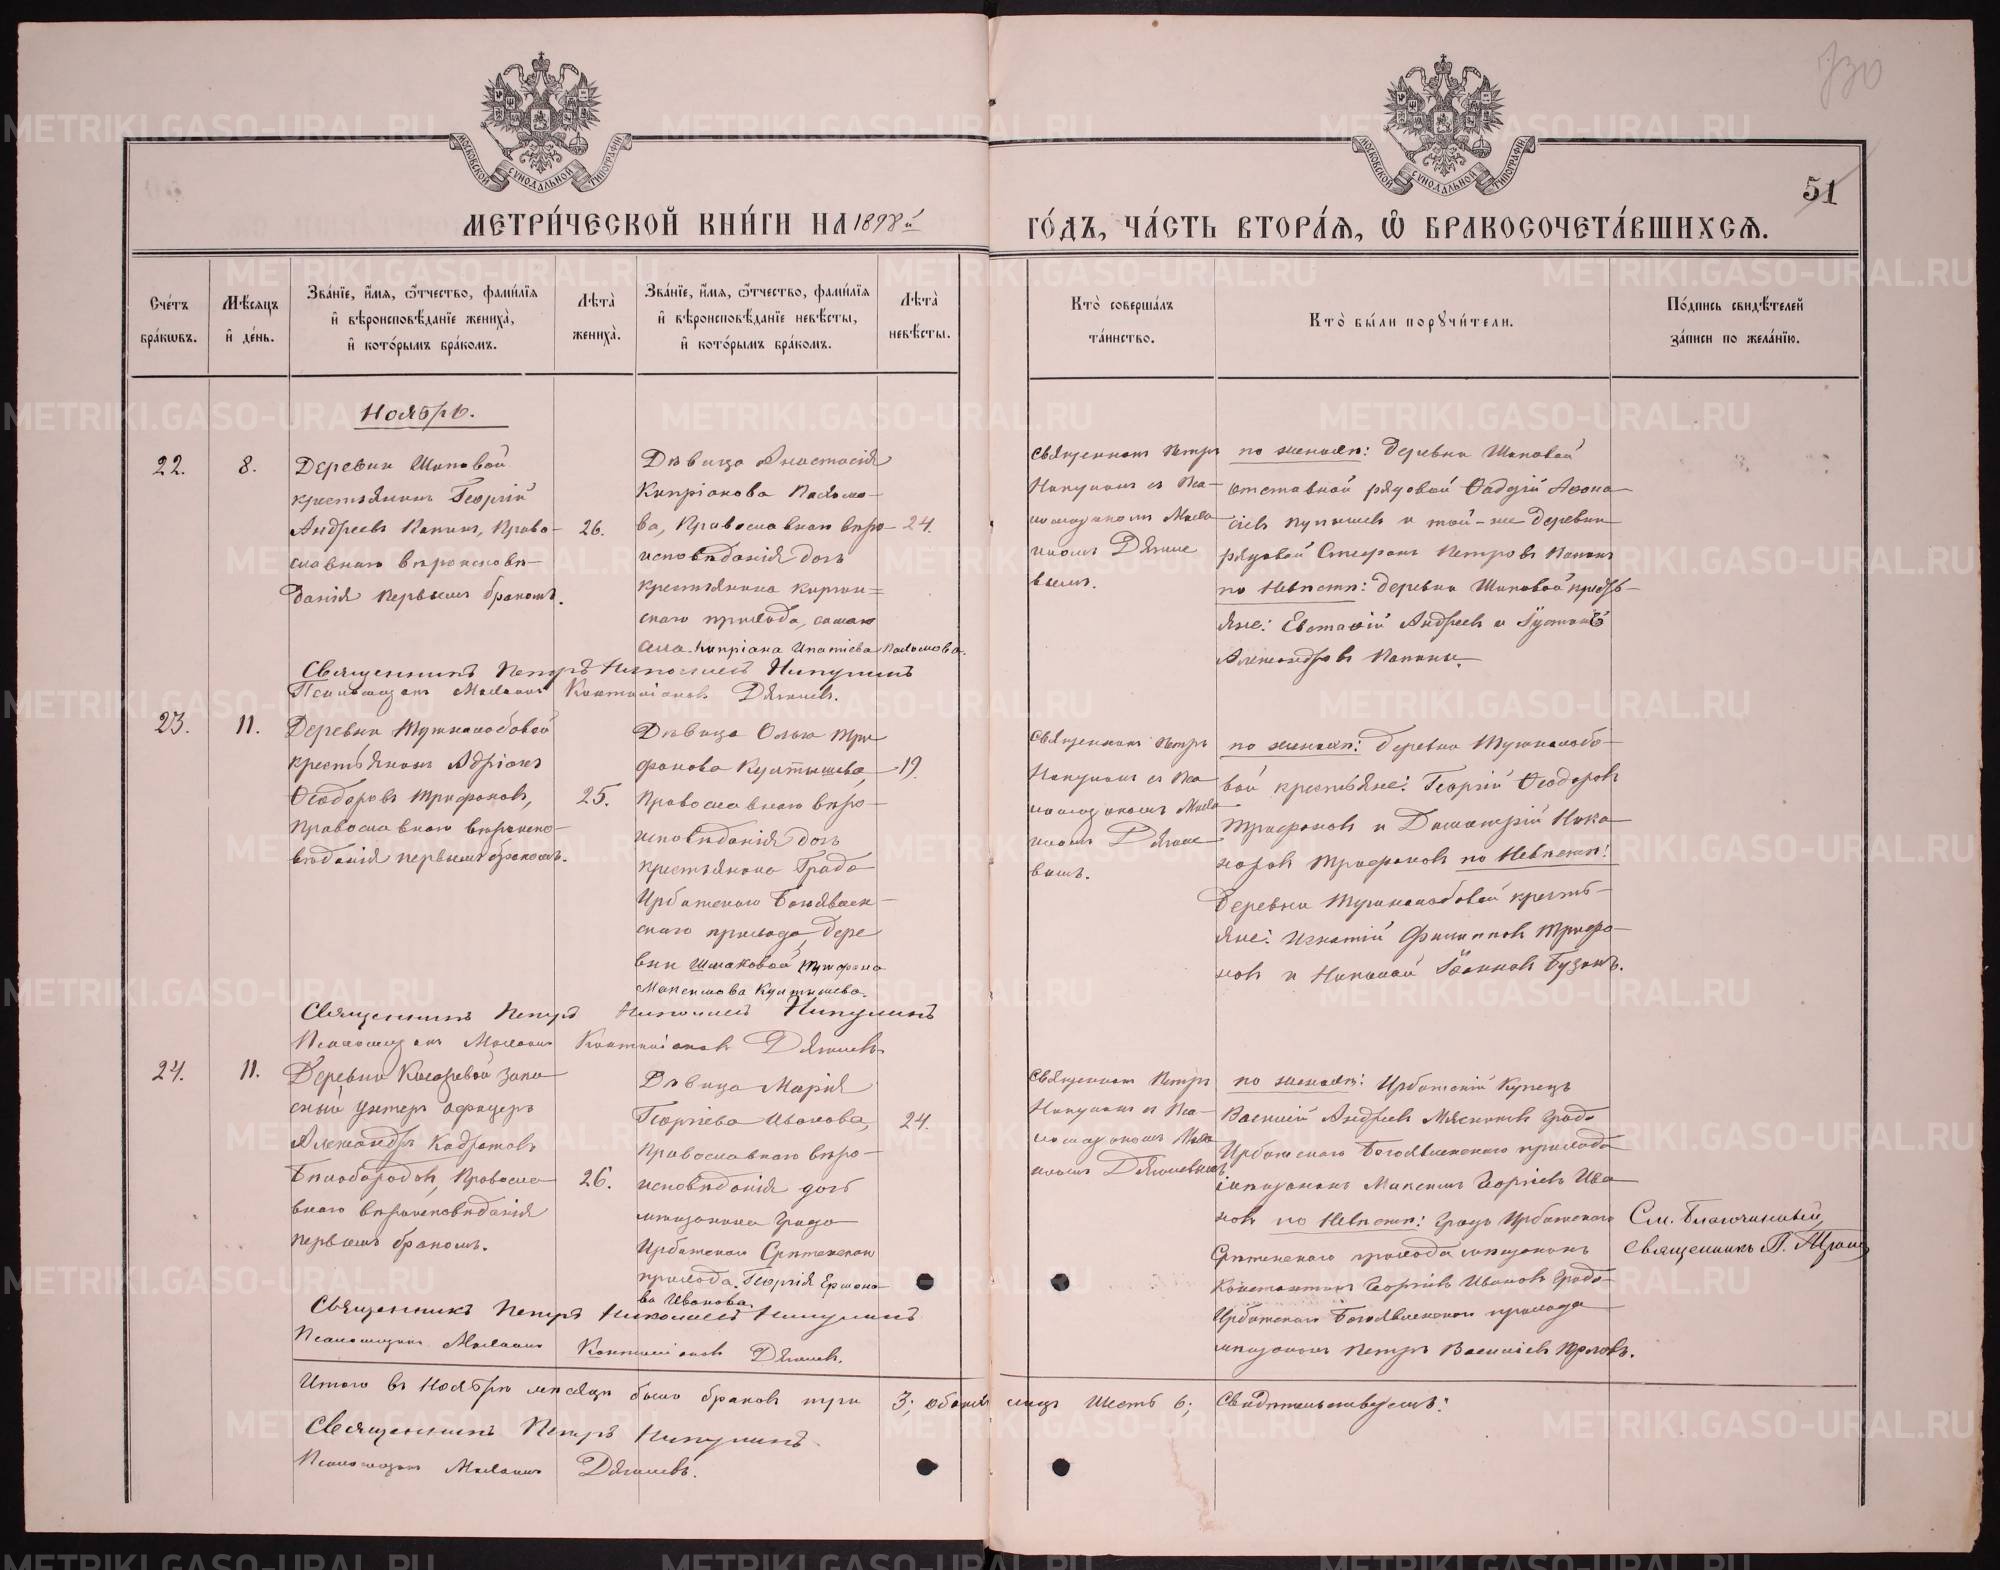 730
51
МОСКОВСКОЙ СѴНОДАЛЬНОЙ ТИПОГРАФІИ
МОСКОВСКОЙ СѴНОДАЛЬНОЙ ТИПОГРАФІИ
МЕТРИ́ЧЕСКОЙ КНИ́ГИ НА 1898й
ГО́ДЪ, ЧА́СТЬ ВТОРА́Я, Ѽ БРАКОСОЧЕТА́ВШИХСЯ.
Сче́тъ
бра́кѡвъ.
Мѣ́сяцъ
и҆ де́нь.
Зва́нїе, и҆́мя, ѻ҆́тчество, фами́лїя
и҆ вѣроисповѣ́данїе жениха̀,
и҆ кото́рымъ бра́комъ.
Лѣта̀
жениха̀.
Зва́нїе, и҆́мя, ѻ҆́тчество, фами́лїя
и҆ вѣроисповѣ́данїе невѣ́сты,
и҆ кото́рымъ бра́комъ.
Лѣта̀
невѣ́сты.
Кто̀ соверша́лъ
та́инство.
Кто̀ бы́ли порꙋчи́тели.
По́дпись свидѣ́телей
за́писи по жела́нїю.
Ноябрь.
22.
8.
Деревни Шиповой
крестьянинъ Георгій
Андреевъ Папинъ, Право-
славнаго вѣроисповѣ-
данія первымъ бракомъ.
26.
Дѣвица Анастасія
Кипріанова Пахомо-
ва, Православнаго вѣро-
исповѣданія дочь
крестьянина Кирги-
скаго прихода, самаго
села Кипріана Ипатіева Пахомова.
24.
Священникъ Петръ
Никулинъ съ Пса-
ломщикомъ Миха
иломъ Дягиле
вымъ.
по женихѣ: деревни Шиповой
отставной рядовой Фаддѣй Афона-
сіевъ и той-же деревни
рядовой Стефанъ Петровъ Папинъ
по Невѣстѣ: деревни Шиповой крестъ-
яне: Евстафій Андреевъ и Іустинъ
Александровы Папины.
Священникъ Петръ Николаевъ Никулинъ
Псаломщикъ Михаилъ Дягилевъ.
23.
11.
Деревни
крестьянинъ Адріанъ
Ѳеодоровъ Трифоновъ,
Православнаго вѣроиспо-
вѣданія первымъ бракомъ.
25.
Дѣвица Ольга Три
фонова Култышева,
Православнаго вѣро-
исповѣданія дочь
крестьянина Града
Ирбитскаго Богоявлен-
скаго прихода, дере
вни Шмаковой Трифона
Максимова Култышева.
19.
Священникъ Петръ
Никулинъ съ Пса
ломщикомъ Миха
иломъ Дягиле
вымъ.
по женихѣ: деревни
вой крестьяне: Георгій Ѳеодоровъ
Трифоновъ и Димитрій Ника
норовъ Трифоновъ по Невѣстѣ:
Деревни крестъ-
яне: Игнатій Филипповъ Трифо-
новъ и Николай Іоанновъ Бузинъ.
Священникъ Петръ Николаевъ Никулинъ
Псаломщикъ Михаилъ Дягилевъ
24.
11.
Деревни запа
сный унтеръ офицеръ
Александръ Кодратовъ
Бѣлобородовъ, Правосла
внаго вѣроисповѣданія
первымъ бракомъ.
26.
Дѣвица Марія
Георгіева Иванова,
Православнаго вѣро-
исповѣданія дочь
мѣщанина Града
Ирбитскаго Срѣтенскаго
прихода Георгія
ва Иванова.
24.
Священникъ Петръ
Никулинъ съ Пса-
ломщикомъ Миха
иломъ Дягилевымъ
по женихѣ: Ирбитскій Купецъ
Василій Андреевъ Мясниковъ Града
Ирбитскаго Богоявленскаго прихода
мѣщанинъ Максимъ Георгіевъ Ива
новъ по Невѣстѣ: Града Ирбитскаго
Срѣтенскаго прихода мѣщанинъ
Константинъ Георгіевъ Ивановъ Града
Ирбитскаго Богоявленскаго прихода
мѣщанинъ Петръ Василіевъ
См. Благочинный,
священникъ П.
Священникъ Петръ Николаевъ Никулинъ
Псаломщикъ Михаилъ Дягилевъ.
Итого въ Ноябрѣ мѣсяцѣ было браковъ три 3; обоихъ лицъ шесть 6; Свидѣтельствуемъ:
Священникъ Петръ Никулинъ
Псаломщикъ Михаилъ Дягилевъ.
METRIKI.GASO-URAL.RU